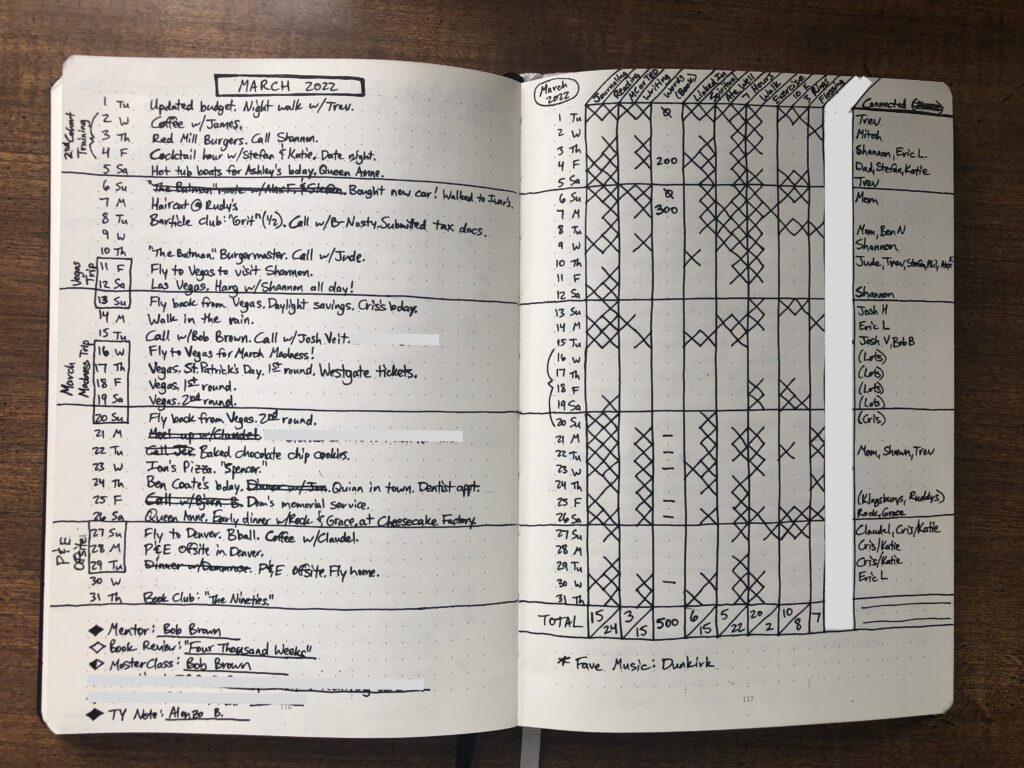 MARCH 2022
2nd Cohort Training
1 Tu Updated budget. Night walk w/Trev.
2 W Coffee w/James.
3 Th Red Mill Burgers. Call Shannon.
4 F Cocktail hour w/Stefan & Katie. Date night.
5 Sa Hot tub boats for Ashley's bday. Queen Anne.
6 Su "The Batman" movie w/Alex F. & Stefan. Bought new car! Walked to Ivar's.
7 M Haircut @ Rudy's
8 Tu Barticle Club: "Grit" (1/2). Call w/B-Nasty. Submitted tax docs.
9 W
10 Th "The Batman." Burgermaster. Call w/Jude.
Vegas Trip
11 F Fly to Vegas to visit Shannon.
12 Sa Las Vegas. Hang w/Shannon all day!
13 Su Fly back from Vegas. Daylight savings. Cris's bday.
14 M Walk in the rain.
15 Tu Call w/Bob Brown. Call w/Josh Veit.
March Madness Trip
16 W Fly to Vegas for March Madness!
17 Th Vegas. St. Patrick's Day. 1st round. Westgate tickets.
18 F Vegas. 1st round.
19 Sa Vegas. 2nd round.
20 Su Fly back from Vegas. 2nd round.
21 M Meet up w/Claudel
22 Tu Call Jer. Baked chocolate chip cookies.
23 W Ian's Pizza. "Spencer."
24 Th Ben Coate's bday. Dinner w/Jon. Quinn in town. Dentist appt.
25 F Call w/Bjorn B. Dom's memorial service.
26 Sa Queen Anne. Early dinner w/Rock & Grace at Cheesecake Factory.
P&E Offsite
27 Su Fly to Denver. Bball. Coffee w/Claudel.
28 M P&E Offsite in Denver.
29 Tu Dinner w/ P&E Offsite. Fly home.
30 W
31 Th Book Club: "The Nineties."
Mentor: Bob Brown
Book Review: "Four Thousand Weeks"
MasterClass: Bob Brown
TY Note: Alonzo B.
116
March 2022
Journaling Reading Writing Words LinkedIn Spiritual Walk Exercise Connected
1 Tu 0 Trev
2 W Mitch
3 Th Shannon, Eric L.
4 F 200 Dad, Stefan, Katie
5 Sa Trev
6 Su 0 Mom
7 M 300
8 Tu Mom, Ben N
9 W Shannon
10 Th Jude, Trev, Stefan, Phil, Alex F
11 F
12 Sa Shannon
13 Su Josh H
14 M Eric L
15 Tu Josh V, Bob B
16 W (Lots)
17 Th (Lots)
18 F (Lots)
19 Sa (Lots)
20 Su (Cris)
21 M –
22 Tu – Mom, Shawn, Trev
23 W –
24 Th
25 F – (Kingsburys, Ruddys)
26 Sa – Rock, Grace
27 Su Claudel, Cris/Katie
28 M Cris/Katie
29 Tu Cris/Katie
30 W – Eric L
31 Th
TOTAL 15/24 3/15 500 6/15 5/22 20/2 10/8 7
* Fave Music: Dunkirk
117